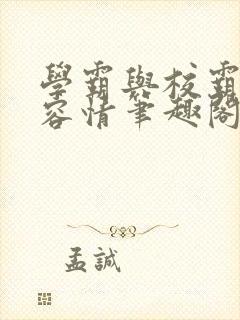 學霸與校霸
容情筆趣閣
孟誠